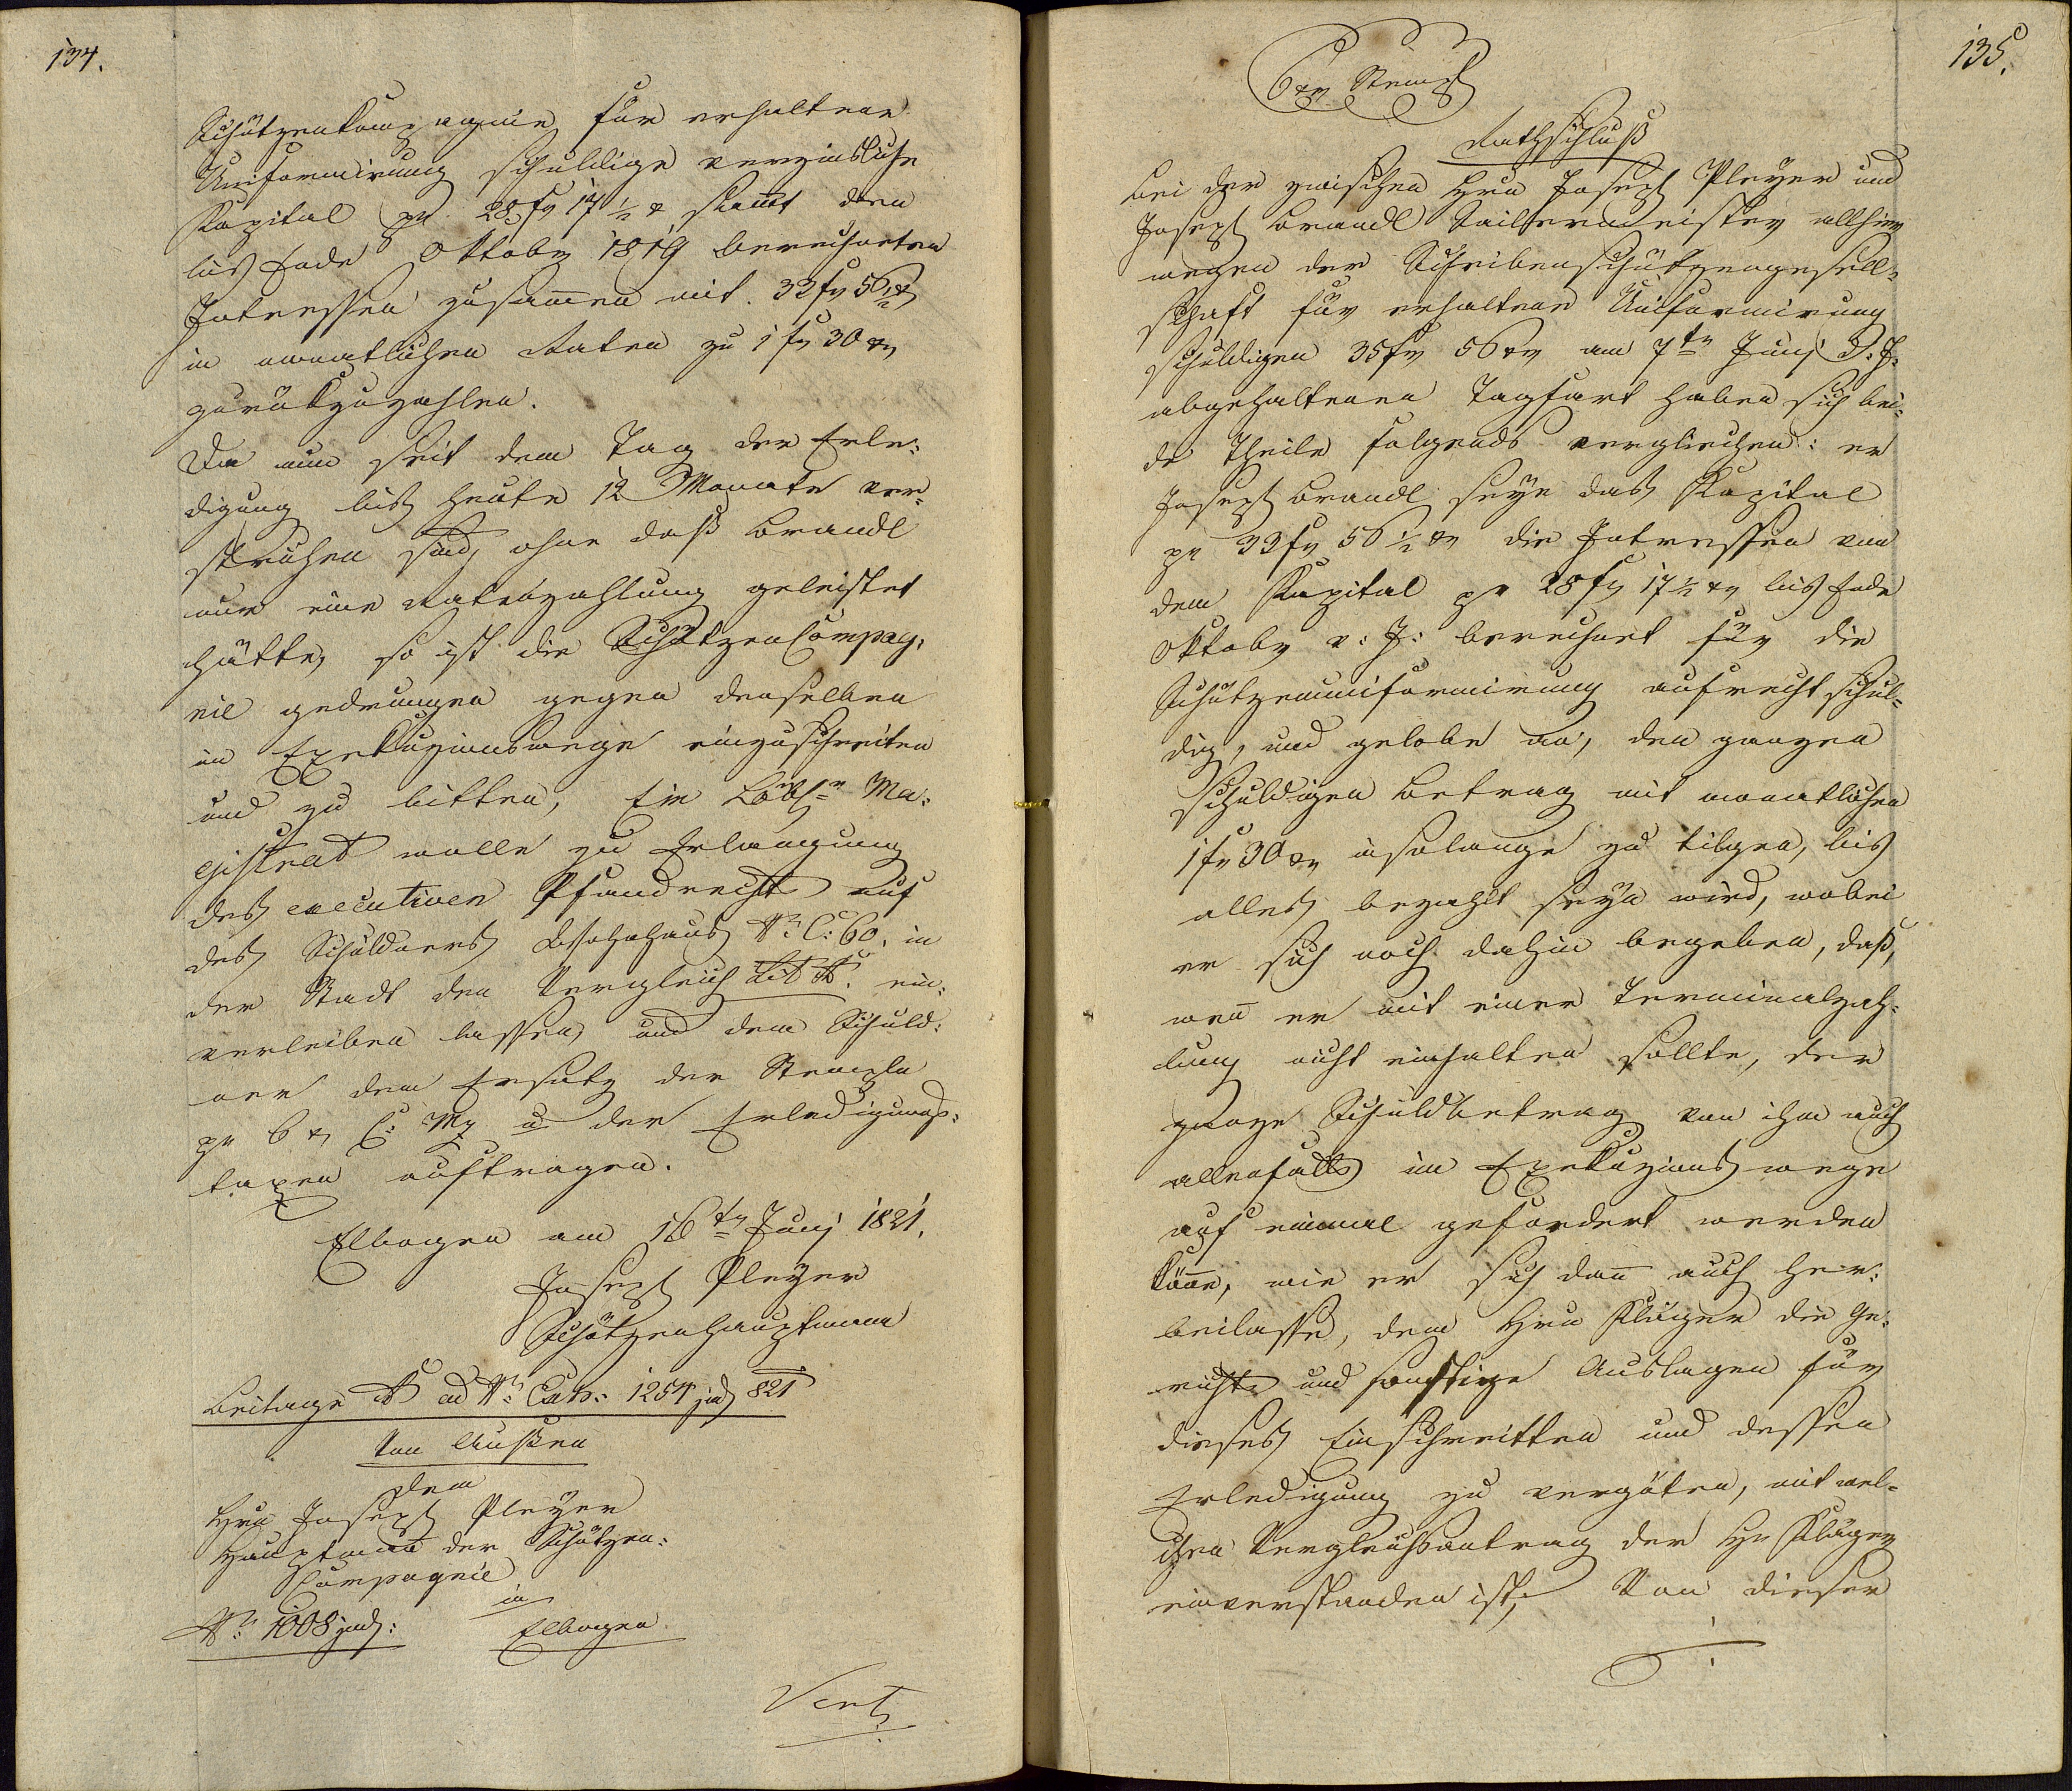 134.
Schützenkompagnie für erhaltene
Uniformirung schuldige verzinsliche
Kapital pr 28 fr 17 ½ x sammt den
bis Ende Oktober 1819 berechneten
Interessen zusammen mit 33 fr 56 ½ xr
in monatlichen Raten zu 1 fr 30 xr
zurükzuzahlen.
Da nun seit dem Tag der Erle-
digung bis heute 12 Monate ver-
strichen sind, ohne daß Brandl
nur eine Ratenzahlung geleistet
hätte, so ist die Schützen Compag-
nie gedrungen gegen denselben
im Exekuzionswege einzuschreiten
und zu bitten, Ein Löbl. Ma-
gistrat wolle zu Erlangung
des executiven Pfandrechts auf
des Schuldners Wohnhaus Nr. C. 60. in
der Stadt den Vergleich Lit A. ein-
verleiben lassen, und dem Schuld-
ner den Ersatz der Stempln
pr 6 x C: Mz u der Erledigungs-
taxen auftragen.
Elbogen am 16tn Juny 1821.
Joseph Pleyer
Schützenhauptmann
Beilage A ad Nr. Exh: 1254 jud 821
Von Außen
Dem
Hrn Joseph Pleyer
Hauptmann der Schützen-
Compagnie
in
Nr. 1008 jud: Elbogen
Vert
135.
6 xr Stempl
Rathschluß
Bei der zwischen Hrn Joseph Pleyer und
Joseph Brandl Seilermeister allhier
wegen der Scheibenschützengesell-
schaft für erhaltene Uniformirung
schuldigen 35 fr 56 xr am 7tn Juny d: J:
abgehaltenen Tagfart haben sich bei-
de Theile folgends verglichen: er
Joseph Brandl seye das Kapital
pr 33 fr 56 ½ xr die Interessen von
dem Kapital pr 28 fr 17 ½ xr bis Ende
Oktober v: J: berechnet für die
Schützenuniformirung aufrecht schul-
dig, und gelobe an, den ganzen
schuldigen Betrag mit monatlichen
1 fr 30 xr insolange zu tilgen, bis
alles bezahlt seyn wird, wobei
er sich noch dahin begeben, daß,
wen̄ er mit einer Terminalzah-
lung nicht einhalten sollte, der
ganze Schuldbetrag von ihm auch
allenfalls im Exekuzionswege
auf einmal gefordert werden
kön̄e, wie er sich dan̄ auch her-
beilasse, dem Hrn Kläger die Ge-
richts und sonstige Auslagen für
dieses Einschreitten und dessen
Erledigung zu vergüten, mit wel-
chen Vergleichsantrag der Hr Kläger
einverstanden ist. Von dieser